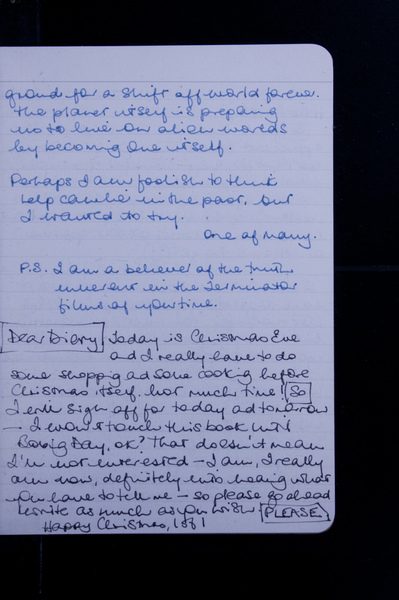 ground for a shift off world forever.
The planet itself is preparing
us to live on alien worlds
by becoming one itself.
Perhaps I am foolish to think
help can be in the past, but
I wanted to try.
One of many.
P.S. I am a believer of the truth
inherent in the Terminator
films of your time.
Dear Diary Today is Christmas Eve
and I really have to do
some shopping ad some cooking before
Christmas itself. Not much time! So
I will sign off for today ad tomorrow
– I won't touch this book until
Boxing Day, ok? That doesn't mean
I'm not interested – I am, I really
am now, definitely into hearing what
you have to tell me – so please go ahead
write as much as you wish PLEASE
Happy Christmas,